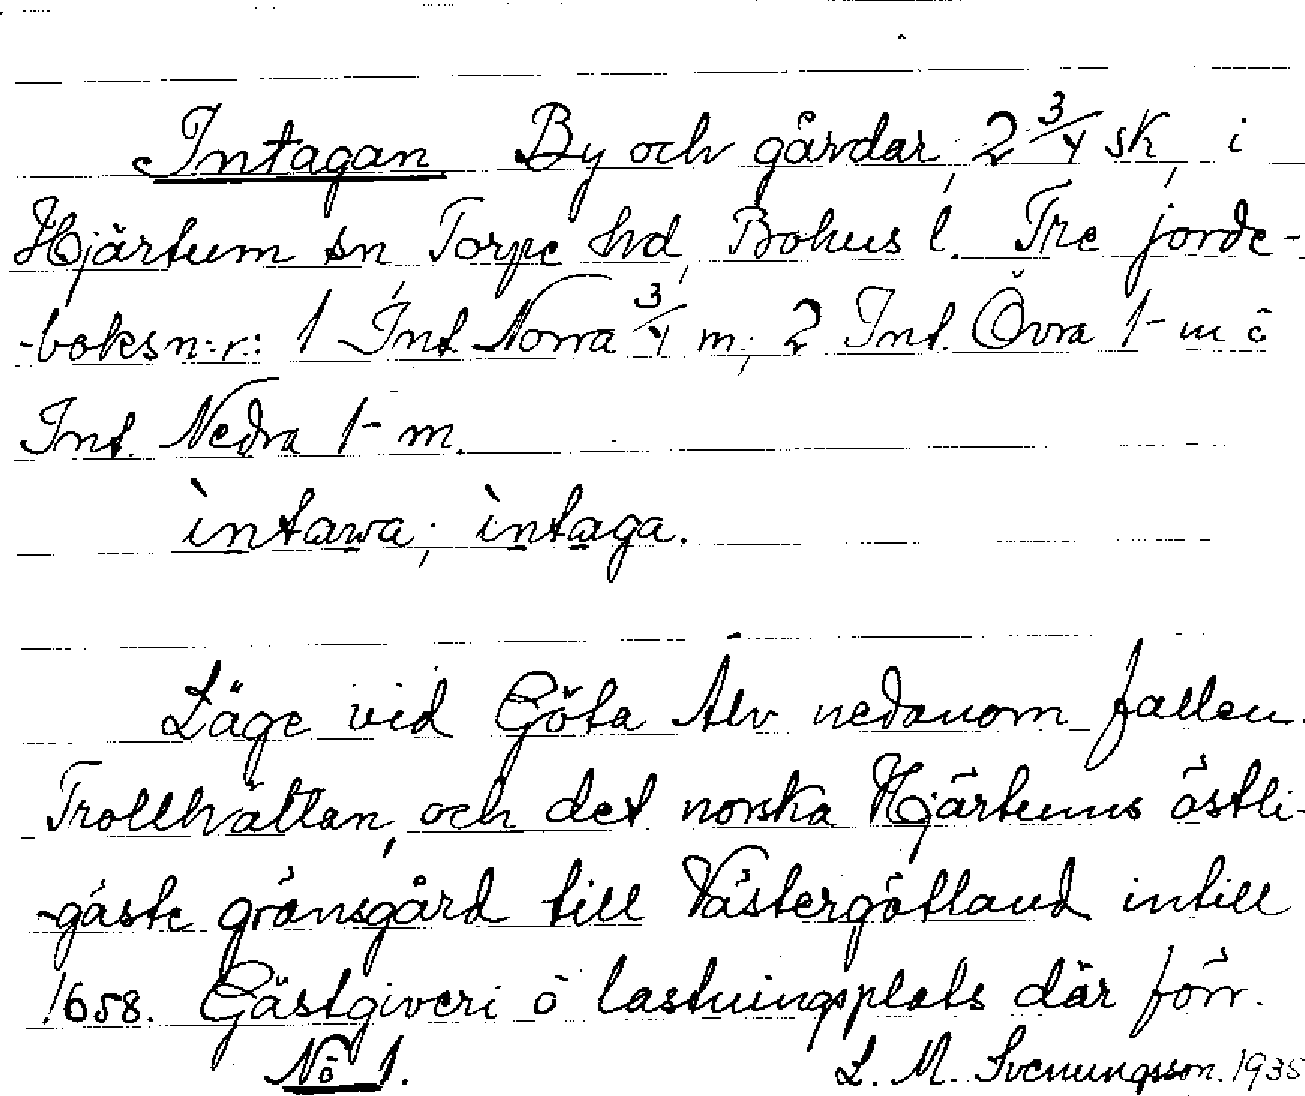 Intagan By och gårdar, 2 3/4 sk, i
Hjärtum sn, Torpe hd, Bohus l. Tre jorde-
-boksn:r: 1 Int. Norra 3/4 m; 2 Int. Övra 1- m ō
Int. Nedra 1- m.
ìntawa; ìntaga.
Läge vid Göta Älv nedanom fallen.
Trollhättan, och det norska Hjärtums östli-
-gaste gränsgård till Västergötland intill
1658. Gästgiveri ō lastningsplats där förr.
No 1. L. M. Svenungsson. 1935